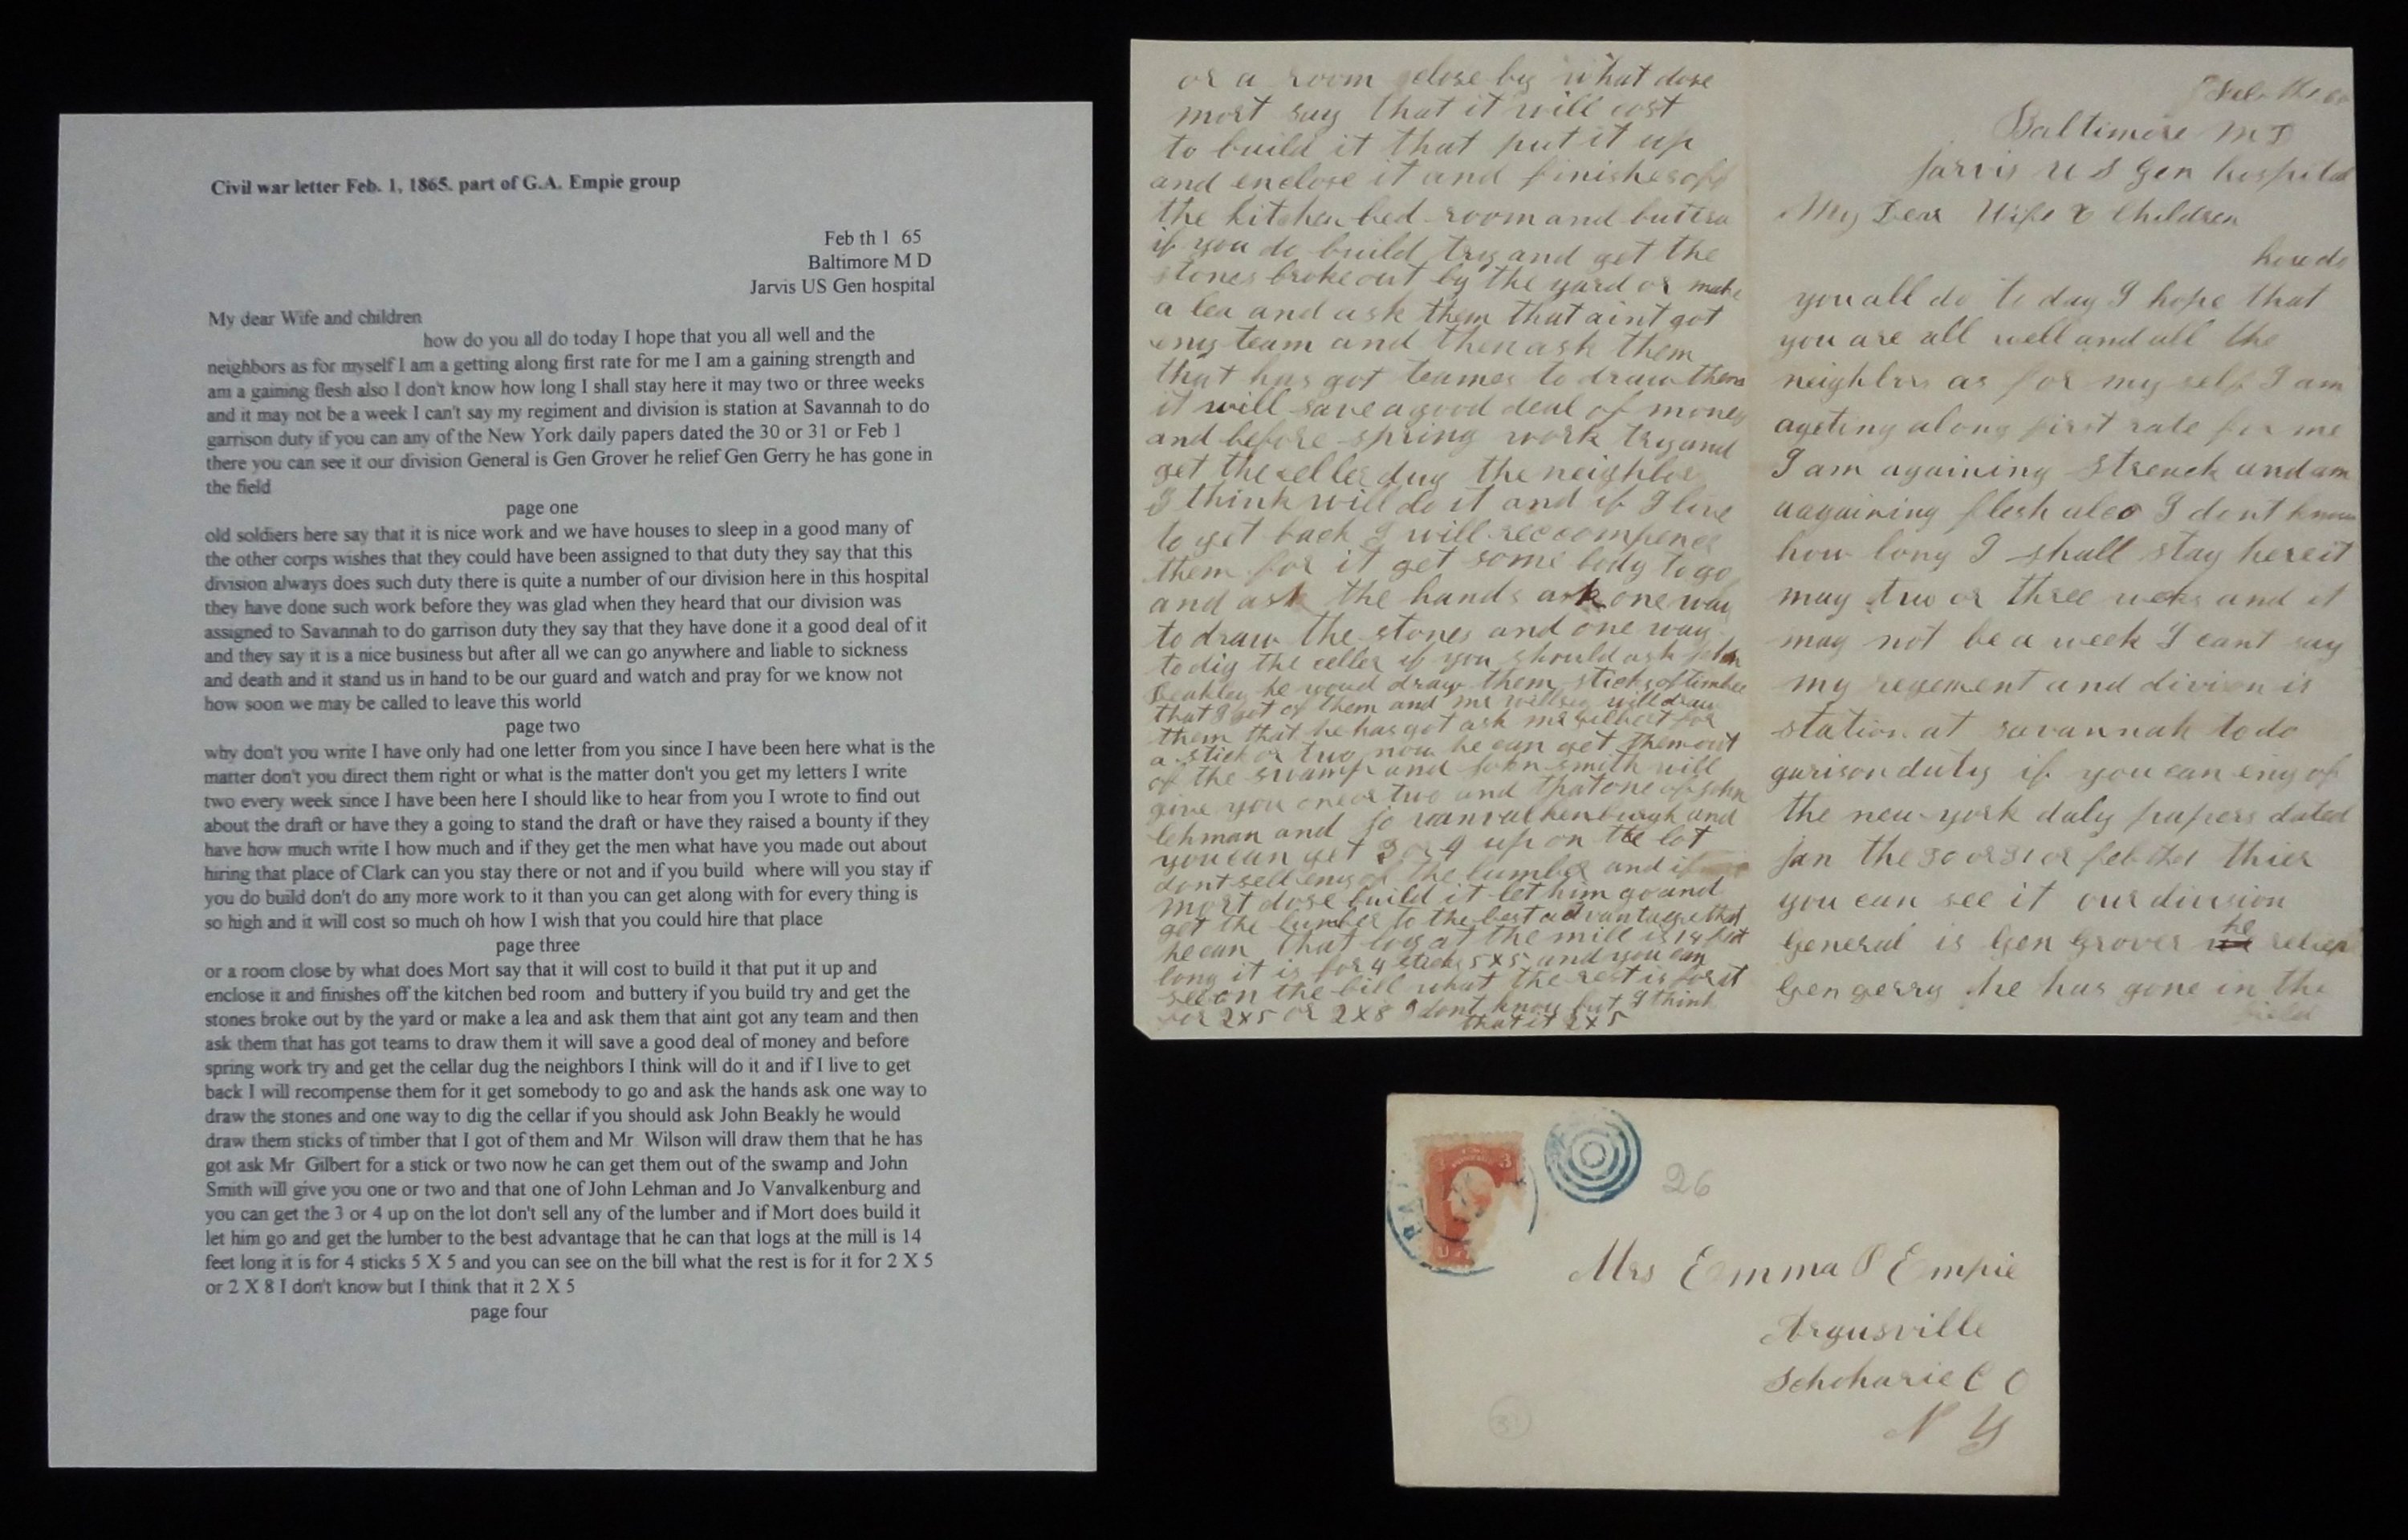 Civil war letter Feb. 1, 1865. part of G.A. Empie group
Feb th 1 65
Baltimore M D
Jarvis US Gen hospital
My dear Wife and children
how do you all do today I hope that you all well and the
neighbors as for myself I am a getting along first rate for me I am a gaining strength and
am a gaining flesh also I don't know how long I shall stay here it may two or three weeks
and it may not be a week I can't say my regiment and division is station at Savannah to do
garrison duty if you can any of the New York daily papers dated the 30 or 31 or Feb 1
there you can see it our division General is Gen Grover he relief Gen Gerry he has gone in
the field
page one
old soldiers here say that it is nice work and we have houses to sleep in a good many of
the other corps wishes that they could have been assigned to that duty they say that this
division always does such duty there is quite a number of our division here in this hospital
they have done such work before they was glad when they heard that our division was
assigned to Savannah to do garrison duty they say that they have done it a good deal of it
and they say it is a nice business but after all we can go anywhere and liable to sickness
and death and it stand us in hand to be our guard and watch and pray for we know not
how soon we may be called to leave this world
page two
why don't you write I have only had one letter from you since I have been here what is the
matter don't you direct them right or what is the matter don't you get my letters I write
two every week since I have been here I should like to hear from you I wrote to find out
about the draft or have they a going to stand the draft or have they raised a bounty if they
have how much write I how much and if they get the men what have you made out about
hiring that place of Clark can you stay there or not and if you build where will you stay if
you do build don't do any more work to it than you can get along with for every thing is
so high and it will cost so much oh how I wish that you could hire that place
page three
or a room close by what does Mort say that it will cost to build it that put it up and
enclose it and finishes off the kitchen bed room and buttery if you build try and get the
stones broke out by the yard or make a lea and ask them that aint got any team and then
ask them that has got teams to draw them it will save a good deal of money and before
spring work try and get the cellar dug the neighbors I think will do it and if I live to get
back I will recompense them for it get somebody to go and ask the hands ask one way to
draw the stones and one way to dig the cellar if you should ask John Beakly he would
draw them sticks of timber that I got of them and Mr. Wilson will draw them that he has
got ask Mr Gilbert for a stick or two now he can get them out of the swamp and John
Smith will give you one or two and that one of John Lehman and Jo Vanvalkenburg and
you can get the 3 or 4 up on the lot don't sell any of the lumber and if Mort does build it
let him go and get the lumber to the best advantage that he can that logs at the mill is 14
feet long it is for 4 sticks 5 X 5 and you can see on the bill what the rest is for it for 2 X 5
or 2 X 8 I don't know but I think that it 2 X 5
page four
or a room close by what dose
mort say that it will cost
to build it that put it up
and enclose it and finishes off
the kitchen bed room and buttra
if you do build try and get the
stones broke out by the yard or make
a lea and ask them that aint got
eny team and then ask them
that has got teames to draw them
it will save a good deal of money
and before spring work try and
get the celler dug the neighbor
I think will do it and if I live
to get back I will reccompence
them for it get some body to go
and ask the hands ask one way
to draw the stones and one way
to dig the celler if you should ask john
Beakley he woud draw them sticks of timber
that I got of them and mr will draw
them that he has got ask mr gilbert for
a stick or two now he can get them out
of the swamp and John smith will
give you one or two and that one of john
lehman and jo vanvalkenburgh and
you can get 3 or 4 up on the lot
dont sell eny of the lumber and if
mort dose build it let him go and
get the lumber to the best advantage that
he can that logs at the mill is 14 feet
long it is for 4 sticks 5 x 5 and you can
see on the bill what the rest is for it
for 2 x 5 or 2 x 8 I dont know but I think
that it 2 x 5
Baltimore M D
Jarvis U S Gen hospital
My Dear Wife & Children
how do
you all do to day I hope that
you are all well and all the
neighbrs as for my self I am
ageting along first rate for me
I am againing strench and am
aagaining flesh also I dont know
how long I shall stay here it
may two or three weeks and it
may not be a week I cant say
my regement and divison is
station at savannah to do
garison duty if you can eny of
the new york daly papers dated
jan the 30 or 31 or feb thier
you can see it our division
General is Gen Grover he relief
Gen gerry he has gone in the
field
26
Mrs Emma Empie
Argusville
Schoharie C O
N Y